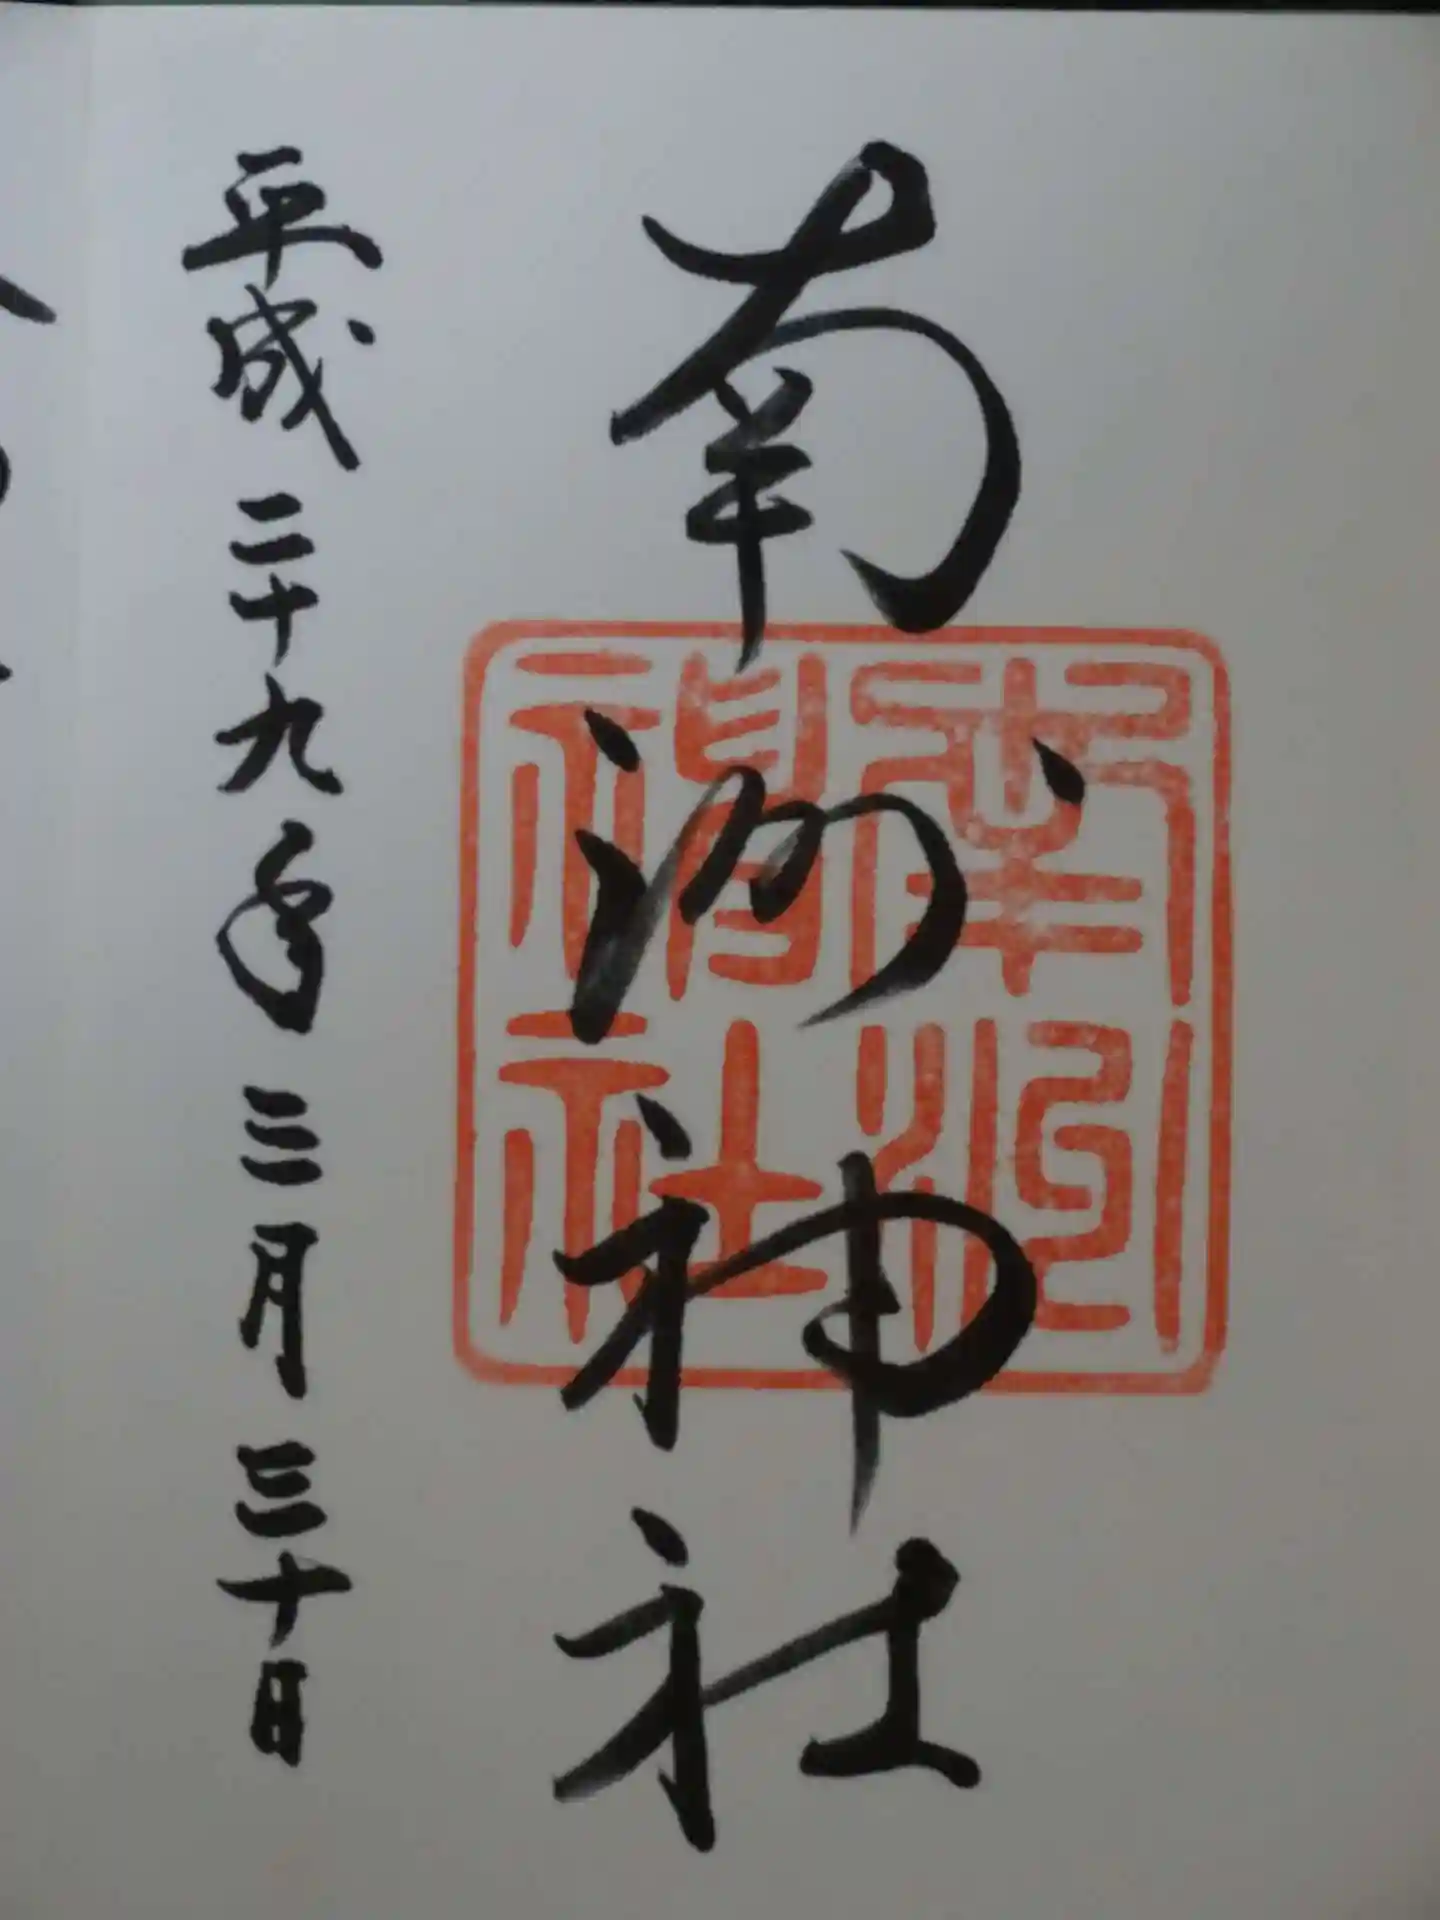 南洲神社
南洲神社
平成二十九年三月三十日